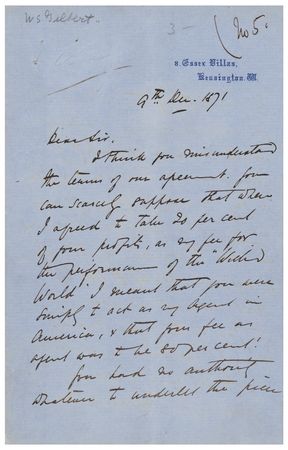 W S Gilbert.
3 -
(No 5.
8. Essex Villas,
Kensington. W.
9th Dec. 1871
Dear Sir.
I think you misunderstand
the terms of our agreement. You
can scarcely suppose that when
I agreed to take 20 per cent
of your profits, as my fee for
the performance of the "Wicked
World" I meant that you were
simply to act as my Agent in
America, & that your fee as
agent was to be 80 per cent!
You had no authority
whatever to underlet the piece